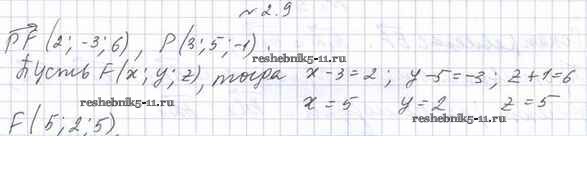 №2.9
PF (2; -3; 6), P(3; 5; -1).
reshebnik5-11.ru
Пусть F(x; y; z), тогда x-3=2; y-5=-3; z+1=6
reshebnik5-11.ru
x=5 y=2 z=5
reshebnik5-11.ru
F(5; 2; 5)